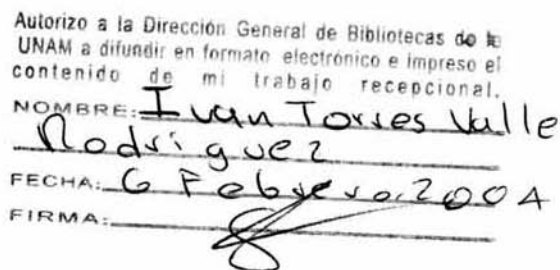 Autorizo a la Dirección General de Bibliotecas de la
UNAM a difundir en formato electrónico e impreso el
contenido de mi trabajo recepcional.
NOMBRE: Ivan Torres Valle
Rodriguez
FECHA: 6 Febrero. 2004
FIRMA: